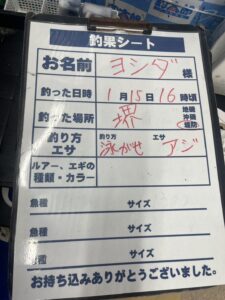 釣果シート
お名前 ヨシダ 様
釣った日時 1月15日16時頃
釣った場所 堺 地磯 沖磯 堤防
釣り方 エサ 釣り方 泳がせ エサ アジ
ルアー、エギの種類・カラー
魚種 サイズ
魚種 サイズ
魚種 サイズ
お持ち込みありがとうございました。